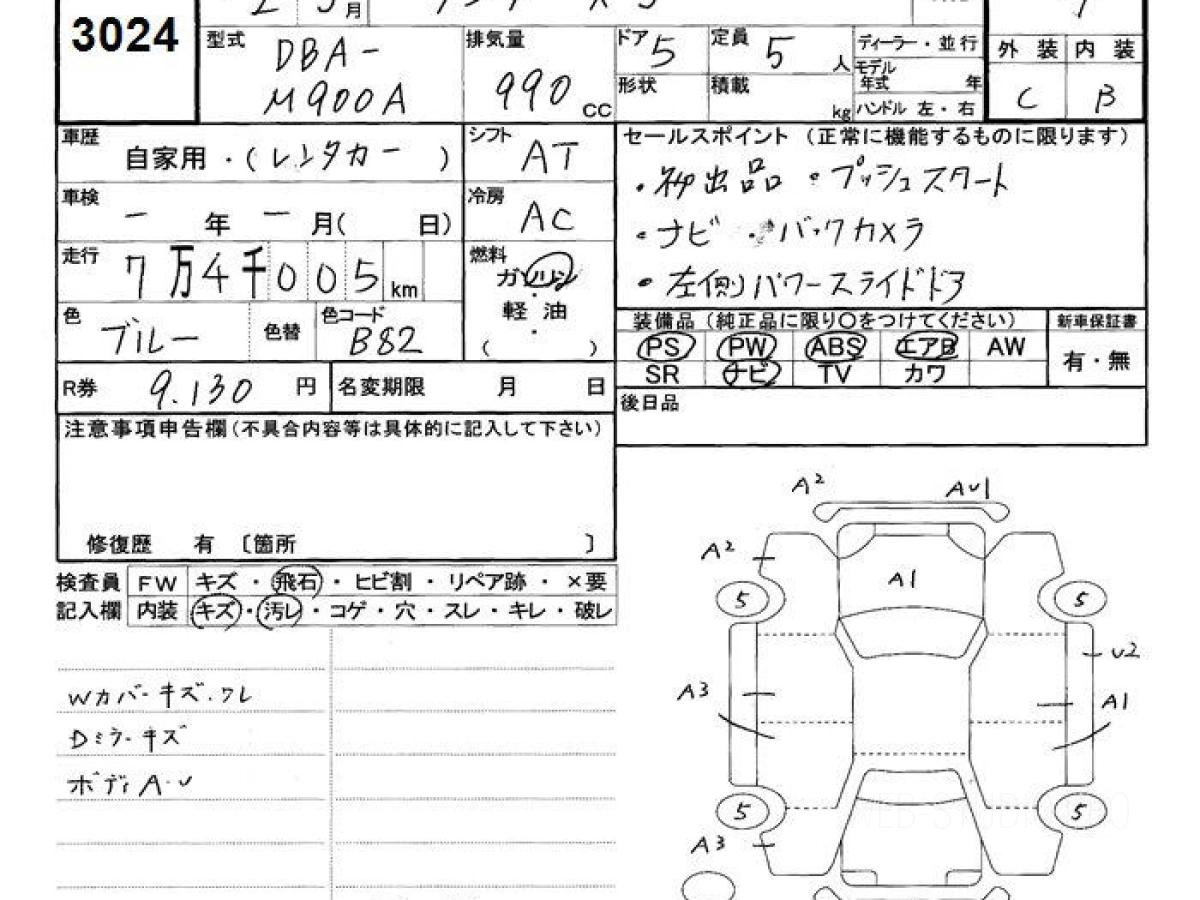 3024
月
型式 DBA-
M900A
排気量 990 CC
ドア 5
定員 5 人
形状
積載 kg
ディーラー・並行
モデル年式 年
ハンドル 左・右
外装 内装
C B
車歴 自家用・(レンタカー)
シフト AT
車検 - 年 - 月( 日)
冷房 AC
走行 7万4千005km
燃料 ガソリン
軽油
・
( )
色 ブルー 色替 色コード B82
R券 9.130 円 名変期限 月 日
セールスポイント(正常に機能するものに限ります)
・初出品 ・プッシュスタート
・ナビ ・バックカメラ
・左側パワースライドドア
装備品(純正品に限り〇をつけてください) 新車保証書
PS PW ABS エアB AW 有・無
SR ナビ TV カワ
後日品
注意事項申告欄(不具合内容等は具体的に記入して下さい)
修復歴 有 〔箇所 〕
検査員 FW キズ・飛石・ヒビ割・リペア跡・×要
記入欄 内装 キズ・汚レ・コゲ・穴・スレ・キレ・破レ
Wカバーキズ.ワレ
Dミラーキズ
ボディA・U
A2 AU1
A2
A1
5 5
U2
A3 A1
5 5
A3